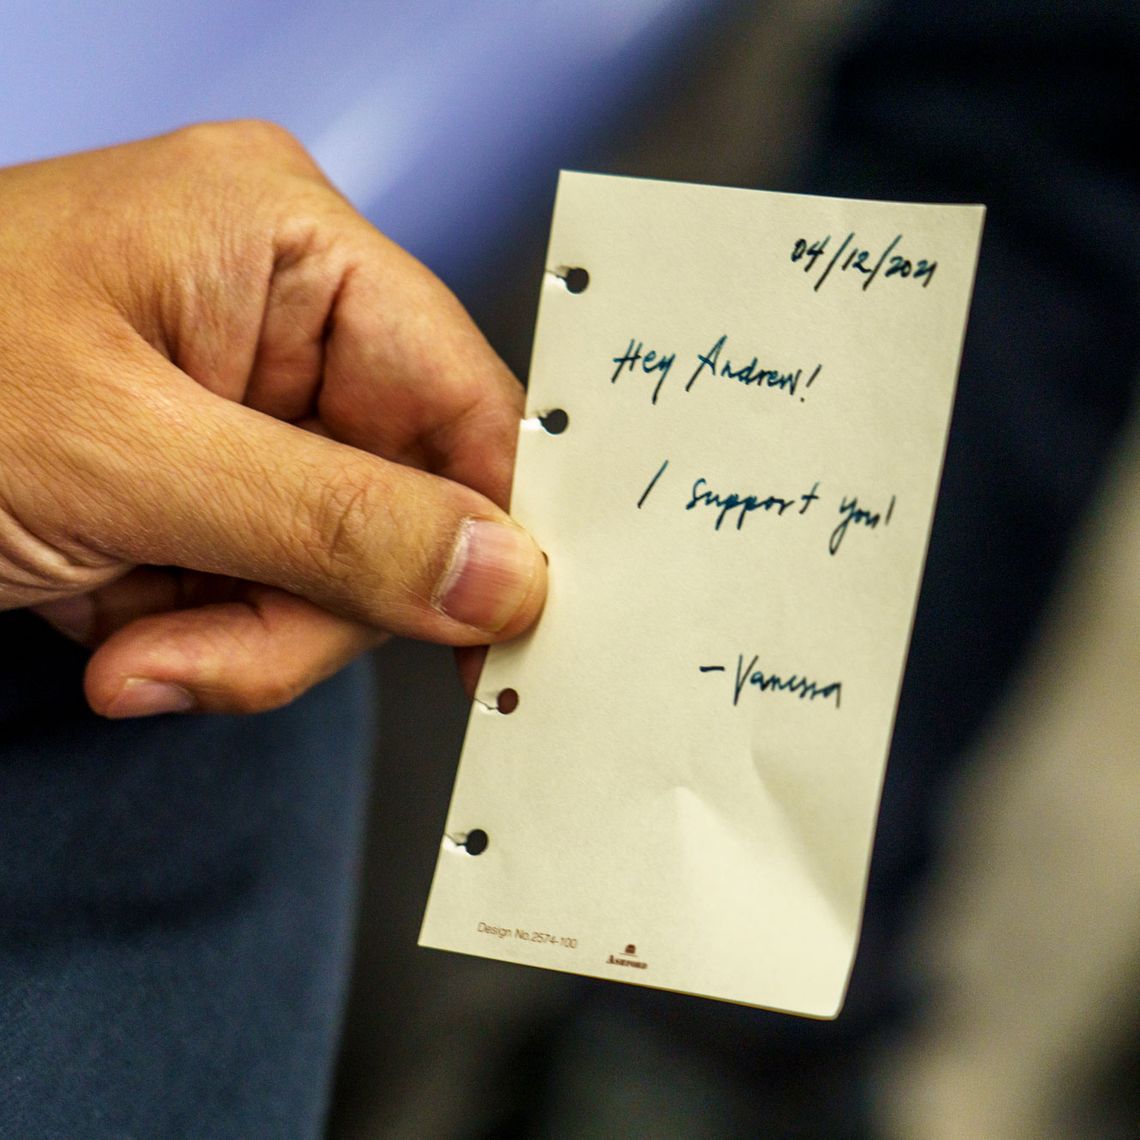 04/12/2021
Hey Andrew!
I support you!
-Vanessa
Design No.2574-100
ASHFORD